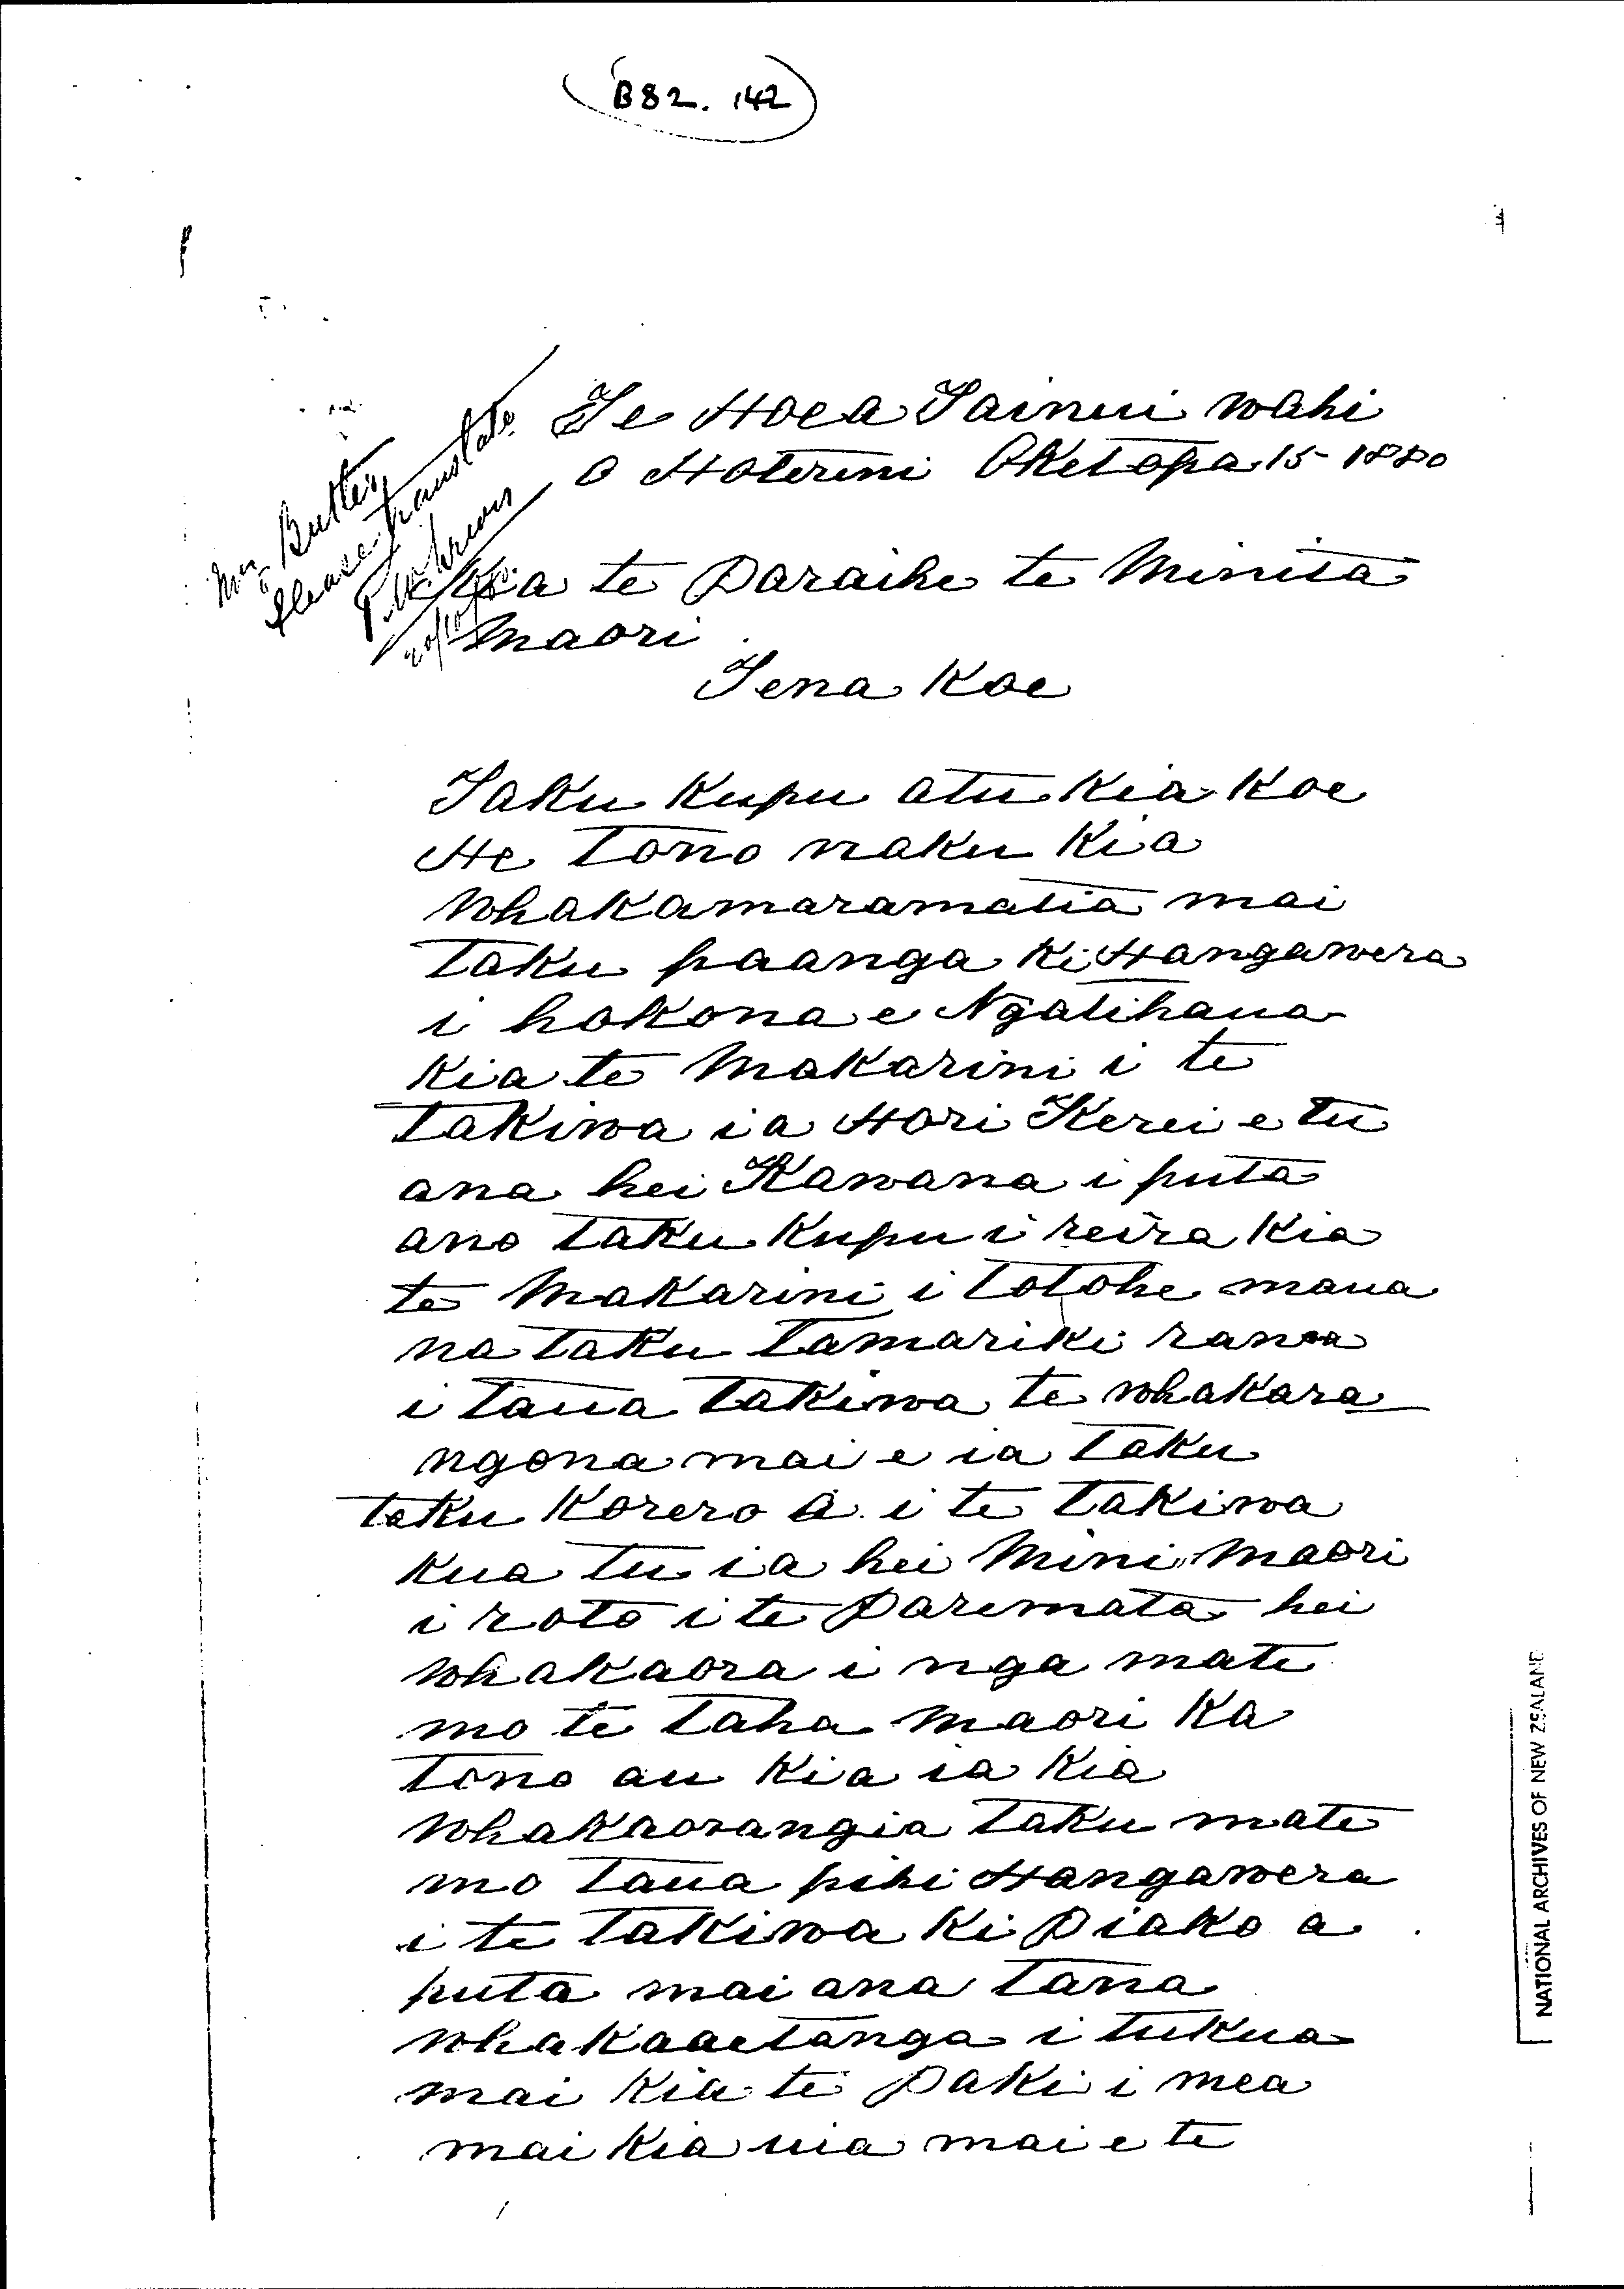 B82. 142
Mr Butler
Please translate
20/10/80.
Te Hoea Tainui wahi
o Hoterini Oketopa 15 1880
Kia te Paraihe te Minita
maori
Tena Koe
Taku Kupu atu kia Koe
He tono naku kia
whakamaramatia mai
taku paanga ki Hangawera
i hokona e Ngatihaua
kia te Makarini i te
takiwa ia Hori Kerei e tu
ana hei Kawana i puta
ano taku kupu i reira kia
te Makarini i totohe maua
na taku tamariki rawa
i taua takiwa te whakara
ngona mai e ia taku
taku korero a i te takiwa
kua tu ia hei Mini Maori
i roto i te Paremata hei
whakaora i nga mate
mo te taha maori ka
tono au kia ia kia
whakaorangia taku mate
mo taua pihi Hangawera
i te takiwa ki Piako a
puta mai ana tana
whakaaetanga i tukua
mai kia te Paki i mea
mai kia uia mai e te
NATIONAL ARCHIVES OF NEW ZEALAND